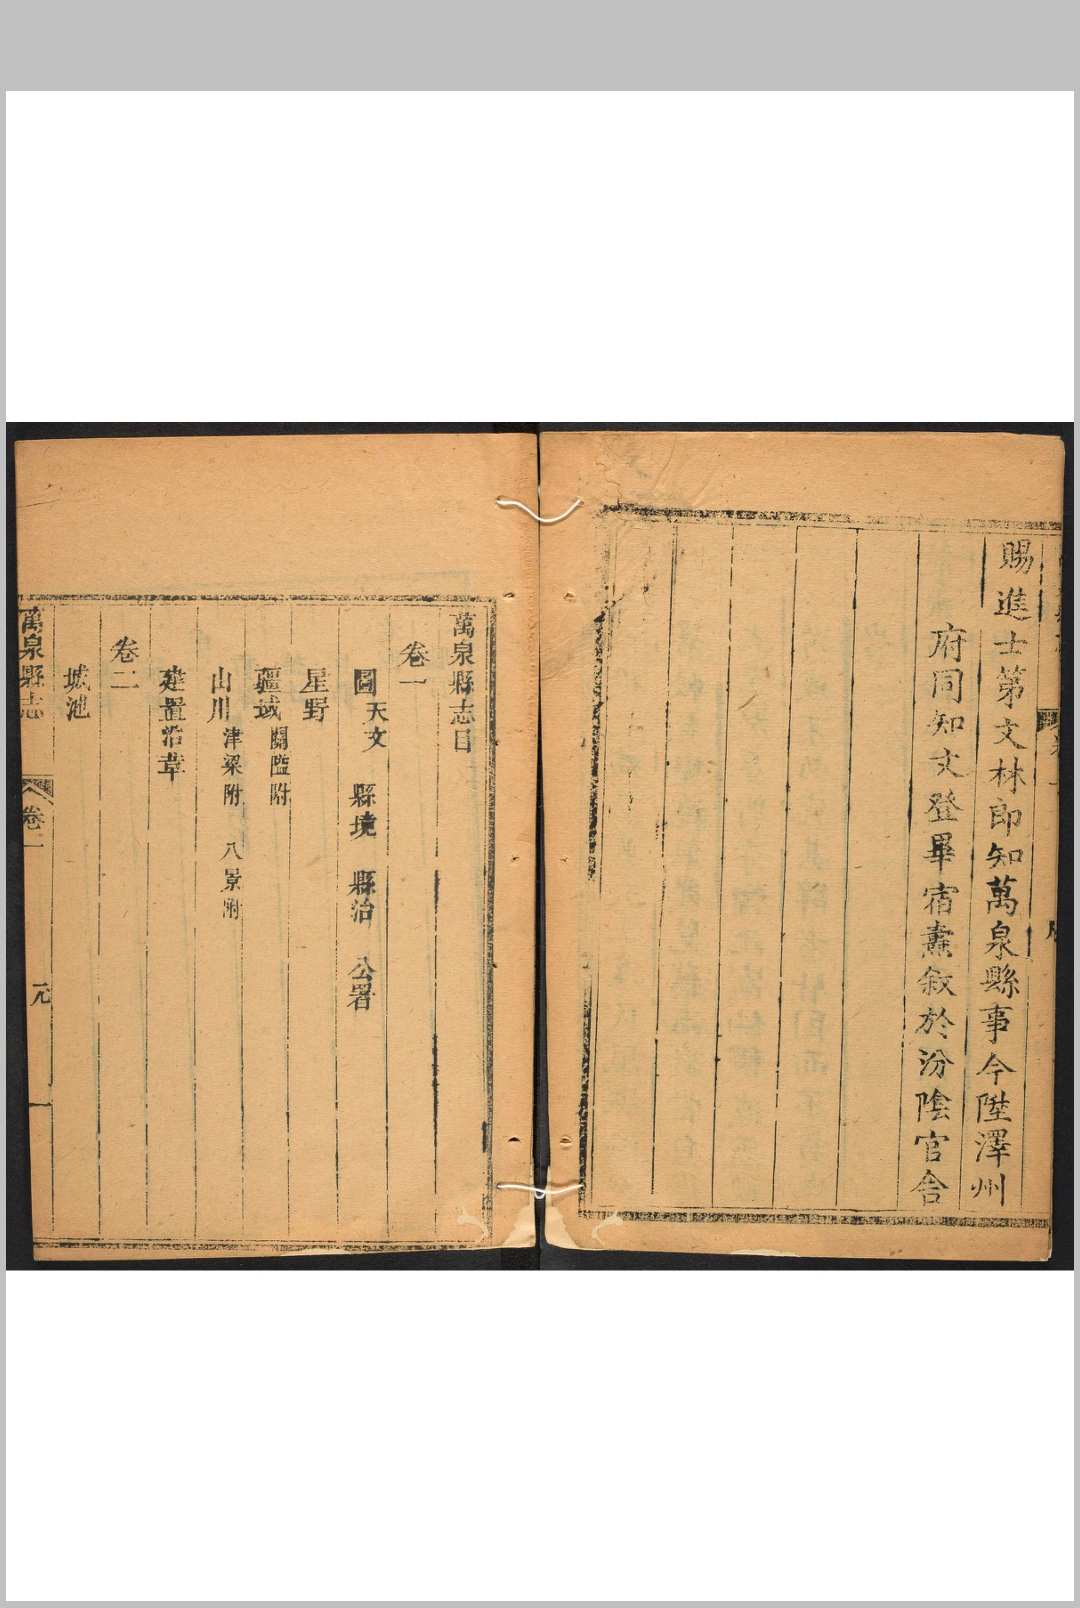 賜進士第文林郎知萬泉縣事今陞澤州
府同知文登畢宿燾敘於汾陰官舍
萬泉縣志目
卷一
圖 天文 縣境 縣治 公署
星野
疆域 關隘附
山川 津梁附 八景附
建置沿革
卷二
城池
萬泉縣志 卷一 元 一